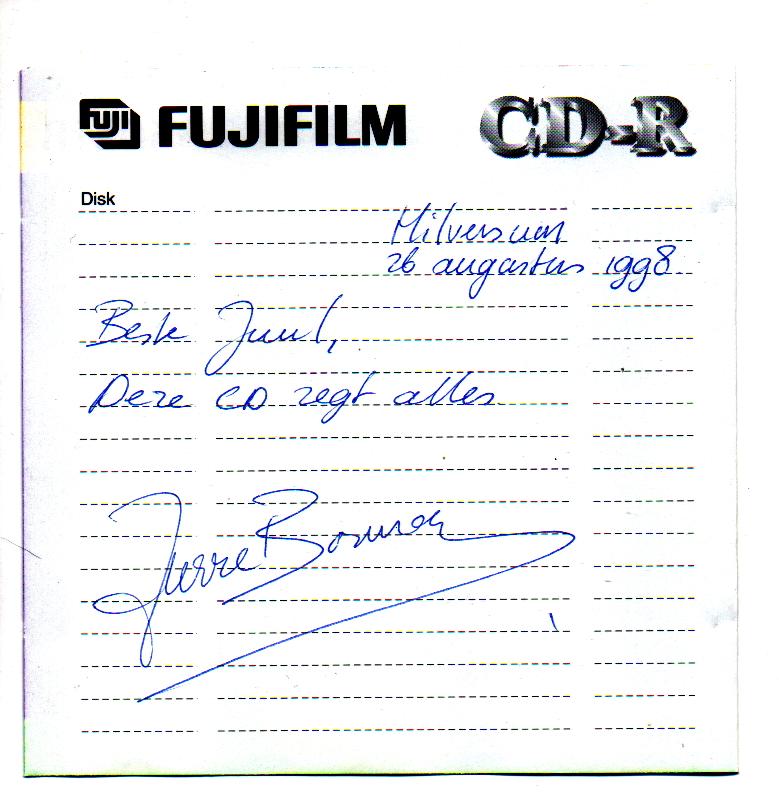 FUJI FUJIFILM CD-R
Disk
Hilversum
26 augustus 1998
Beste Juul,
Deze CD zegt alles
Pierre